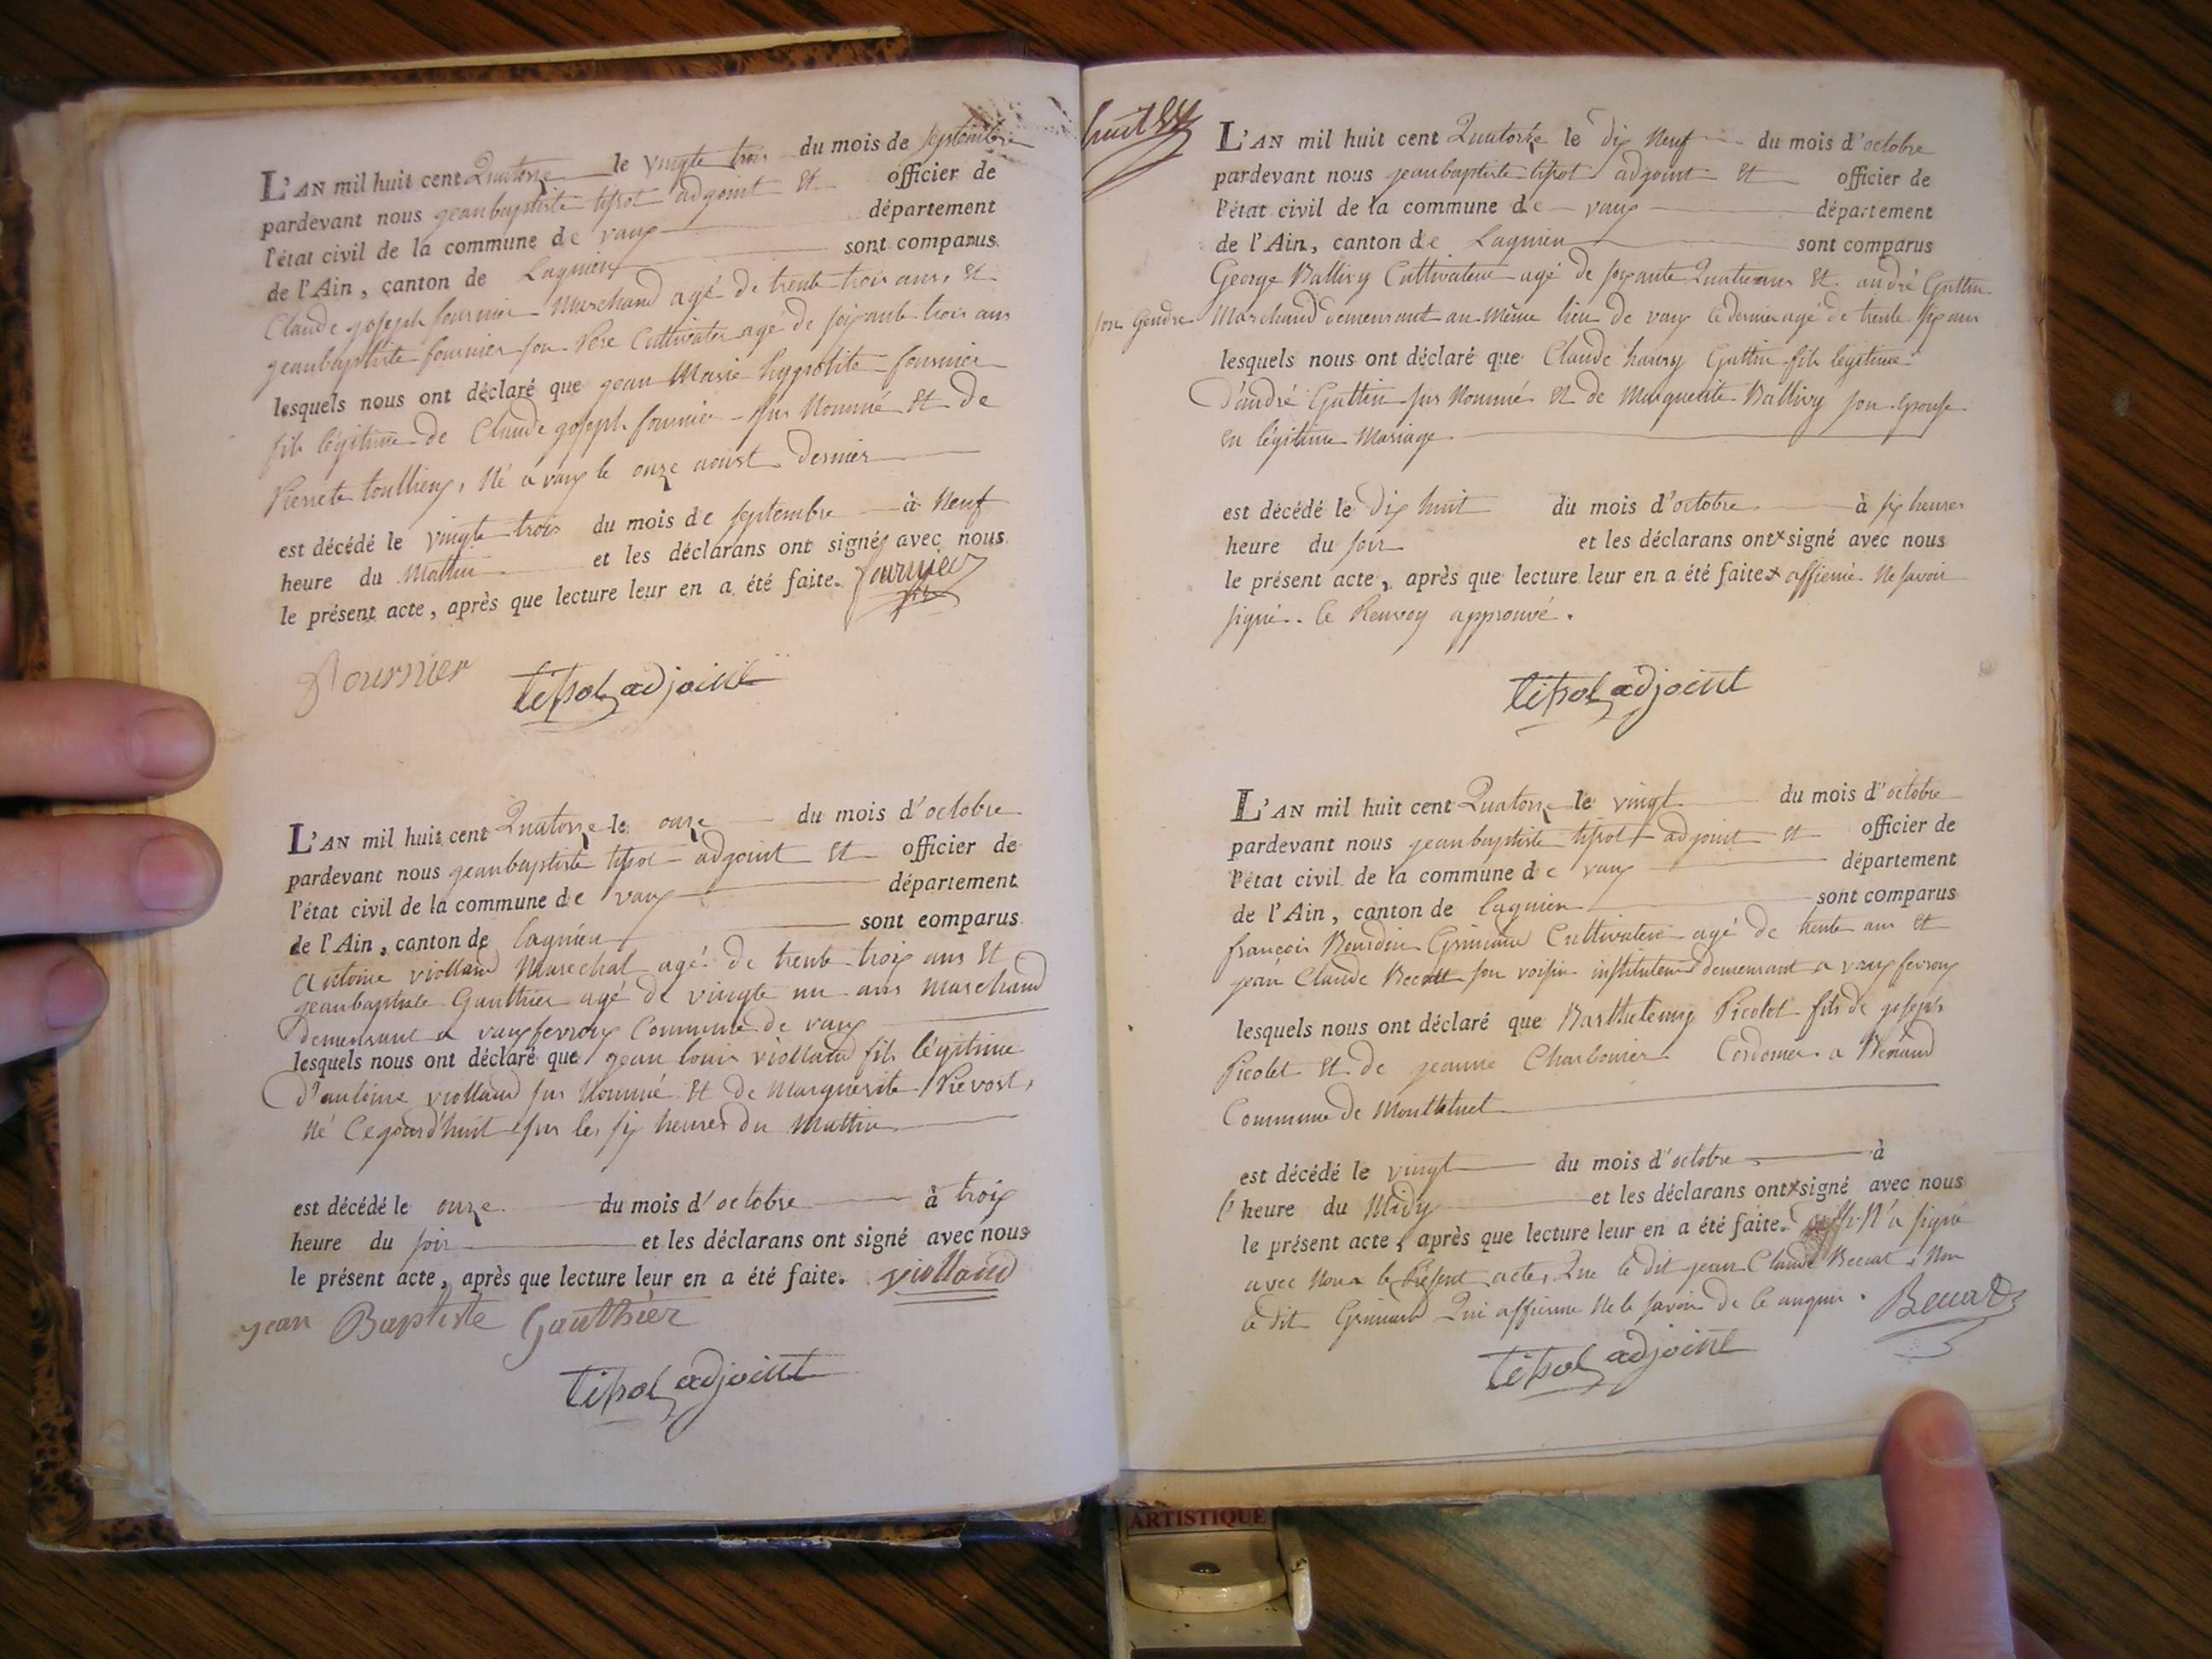 L'AN mil huit cent Quatorze le vingte trois du mois de septembre
pardevant nous jeanbaptiste tissot adjoint Et officier de
l'état civil de la commune de vaux département
de l'Ain, canton de Lagnieu sont comparus
Claude joseph fournier Marchand agé de trente trois ans, Et
jeanbaptiste fournier son Pere Cultivater agé de soixante trois ans
lesquels nous ont déclaré que jean Marie hyppolite fournier
fils légitime de Claude joseph fournier sus Nommé Et de
Pierrete, Né a vaux le onze aoust dernier
est décédé le vingte trois du mois de septembre à Neuf
heure du Mattin et les déclarans ont signés avec nous
le présent acte, après que lecture leur en a été faite. fournier
fournier tissot adjoint
L'AN mil huit cent Quatorze le onze du mois d'octobre
pardevant nous jeanbaptiste tissot adjoint Et officier de
l'état civil de la commune de vaux département
de l'Ain, canton de lagnieu sont comparus
Antoine viollaud Marechal agé de trente trois ans Et
jeanbaptiste Gauthier agé de vingte un ans Marchand
demeurant a vauxfevroux Commune de vaux
lesquels nous ont déclaré que jean louis viollaud fils légitime
d'antoine viollaud sus Nommé Et de Marguerite Prevost,
Né Cejourd'huit sur les six heures du Mattin
est décédé le onze du mois d'octobre à trois
heure du soir et les déclarans ont signé avec nous
le présent acte, après que lecture leur en a été faite. viollaud
jean Baptiste Gauthier
tissot adjoint
huit
L'AN mil huit cent Quatorze le dix Neuf du mois d'octobre
pardevant nous jeanbaptiste tissot adjoint Et officier de
l'état civil de la commune de vaux département
de l'Ain, canton de Lagnieu sont comparus
George Ballivy Cultivateur agé de soixante Quatre ans Et andré Guttin
son Gendre Marchand demeurant au Même lieu de vaux le dernier agé de trente six ans
lesquels nous ont déclaré que Claude hanry Guttin fils légitime
d'andré Guttin sus Nommé Et de Marguerite Ballivy son Epouse
en légitime Mariage
est décédé le dix huit du mois d'octobre à six heures
heure du soir et les déclarans ont x signé avec nous
le présent acte, après que lecture leur en a été faite x affirmé Ne savoir
signé. le Renvoy approuvé.
tissot adjoint
L'AN mil huit cent Quatorze le vingt du mois d'octobre
pardevant nous jeanbaptiste tissot adjoint Et officier de
l'état civil de la commune de vaux département
de l'Ain, canton de lagnieu sont comparus
françois Bourdin Grimaud Cultivateur agé de trente ans Et
jean Claude Beccat son voisin instituteur demeurant a vauxfevroux
lesquels nous ont déclaré que Barthelemy Picolet fils de joseph
Picolet Et de jeanne Charbonier Cordonier a
Commune de Monttluel
est décédé le vingt du mois d'octobre à
l'heure du Midy et les déclarans ont x signé avec nous
le présent acte, après que lecture leur en a été faite. N'a signé
avec Nous le Présent acte, Que le dit jean Claude Beccat, Non
le dit Grimaud Qui affirme Ne le savoir de ce anquis. Beccat
tissot adjoint
ARTISTIQUE